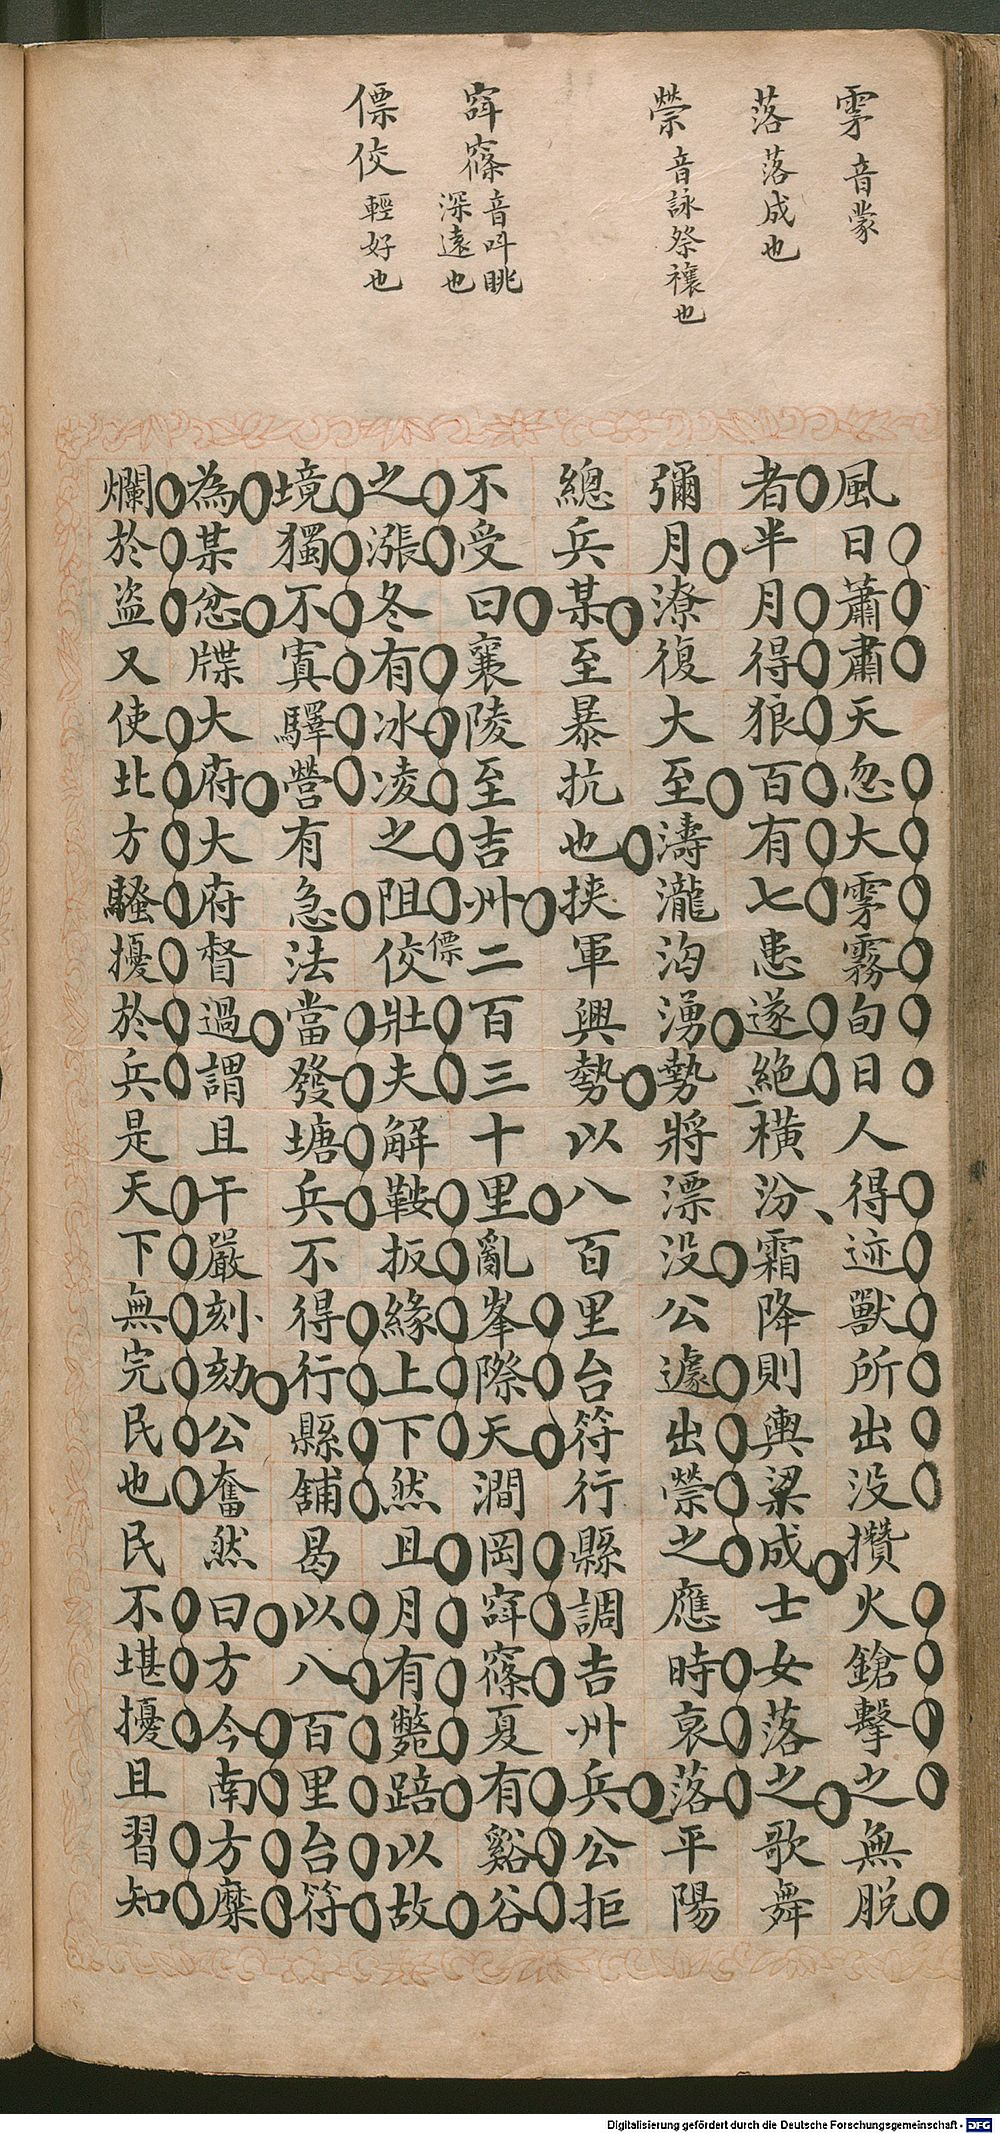 雺 音蒙
落 落成也
禜 音詠祭禳也
窲窱 音叫眺
深遠也
僄佼 輕好也
風日蕭肅天忽大雺霧旬日人得迹獸所出没攢火鎗擊之無脫
者半月得狼百有七患遂絕橫汾霜降則輿梁成士女落之歌舞
彌月潦復大至濤瀧洶湧勢將漂没公遽出禜之應時哀落平陽
總兵某至暴抗也挟軍興勢以八百里台符行縣調吉州兵公拒
不受曰襄陵至吉州二百三十里亂峯際天澗岡窲窱夏有谿谷
之漲冬有冰凌之阻僄佼壯夫解鞍扳緣上下然且月有斃踣以故
境獨不寘驛營有急法當發塘兵不得行縣舖曷以八百里台符
為某忿牒大府大府督過謂且干嚴刻劾公奮然曰方今南方糜
爛於盜又使北方騷擾於兵是天下無完民也民不堪擾且習知
Digitalisierung gefördert durch die Deutsche Forschungsgemeinschaft - DFG